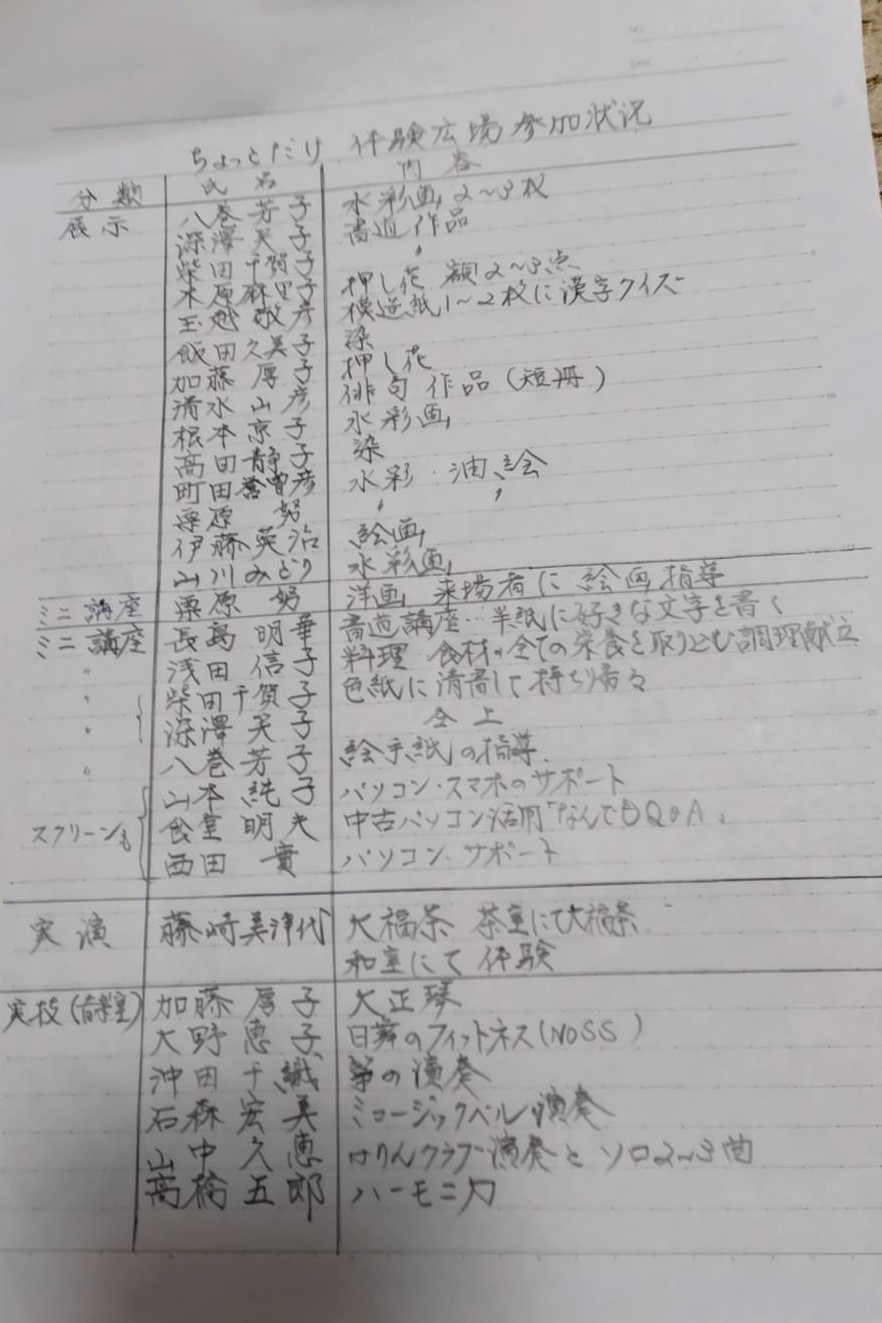 ちょっとだけ 体験広場参加状況
分類 氏名 内容
展示 八巻芳子 水彩画 2～3枚
深澤 子 書道作品
柴田千賀子 〃
木原麻里子 押し花 額2～3点
玉越敬彦 模造紙1～2枚に漢字クイズ
飯田久美子 染
加藤厚子 押し花
清水山彦 俳句作品（短冊）
根本京子 水彩画
高田静子 染
町田 彦 水彩・油絵
栗原 努 〃 〃
伊藤英治 絵画
山川みどり 水彩画
ミニ講座 栗原 努 洋画 来場者に絵画指導
ミニ講座 長島明華 書道講座…半紙に好きな文字を書く
〃 浅田信子 料理 食材の全ての栄養を取りこむ調理献立
〃 柴田千賀子 色紙に清書して持ち帰る
〃 深澤 子 仝上
〃 八巻芳子 絵手紙の指導
山本純子 パソコン・スマホのサポート
スクリーンも 食堂明夫 中古パソコン活用「なんでもQ&A」
西田 實 パソコン・サポート
実演 藤崎美津代 大福茶 茶室にて大福茶
和室にて体験
実技（音楽室） 加藤厚子 大正琴
大野恵子 日舞のフィットネス（NOSS）
沖田千織 箏の演奏
石森宏美 ミュージックベル演奏
山中久恵 クラブ演奏とソロ2～3曲
高橋五郎 ハーモニカ